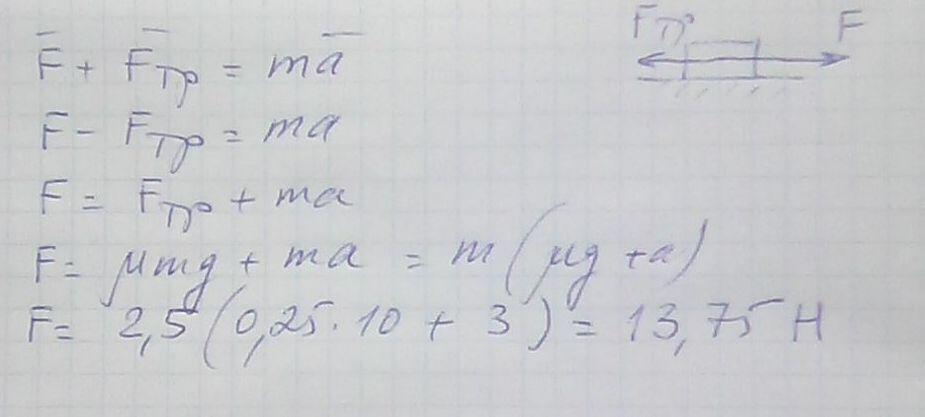 Fтр F
F̄ + F̄тр = mā
F - Fтр = ma
F = Fтр + ma
F = μmg + ma = m(μg + a)
F = 2,5(0,25·10 + 3) = 13,75 Н